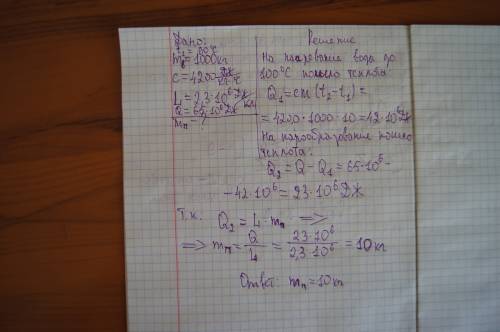 Дано:
t₁ = 90°C
m = 1000 кг
c = 4200 Дж/кг·°C
L = 2,3·10⁶ Дж/кг
Q = 65·10⁶ Дж
mп - ?
Решение
На нагревание воды до
100°C пошло теплоты
Q₁ = cm(t₂-t₁) =
= 4200·1000·10 = 42·10⁶ Дж
На парообразование пошло
теплота:
Q₂ = Q - Q₁ = 65·10⁶ -
- 42·10⁶ = 23·10⁶ Дж
Т.к. Q₂ = L·mп ⇒
⇒ mп = Q/L = 23·10⁶/2,3·10⁶ = 10 кг
Ответ: mп = 10 кг